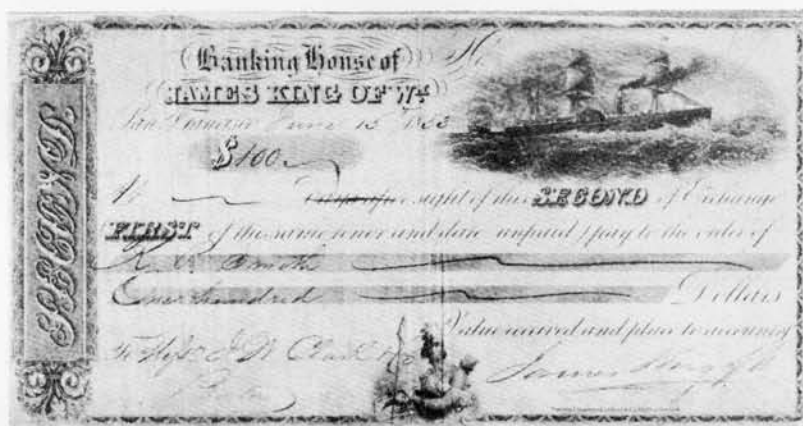 SECOND
Banking House of No.
JAMES KING OF Wm.
San Francisco June 15 1853
$100
At sight of this SECOND of Exchange
FIRST of the same tenor and date unpaid pay to the order of
Smith
One hundred Dollars
Value received and place to account
To J W Clark
James King of